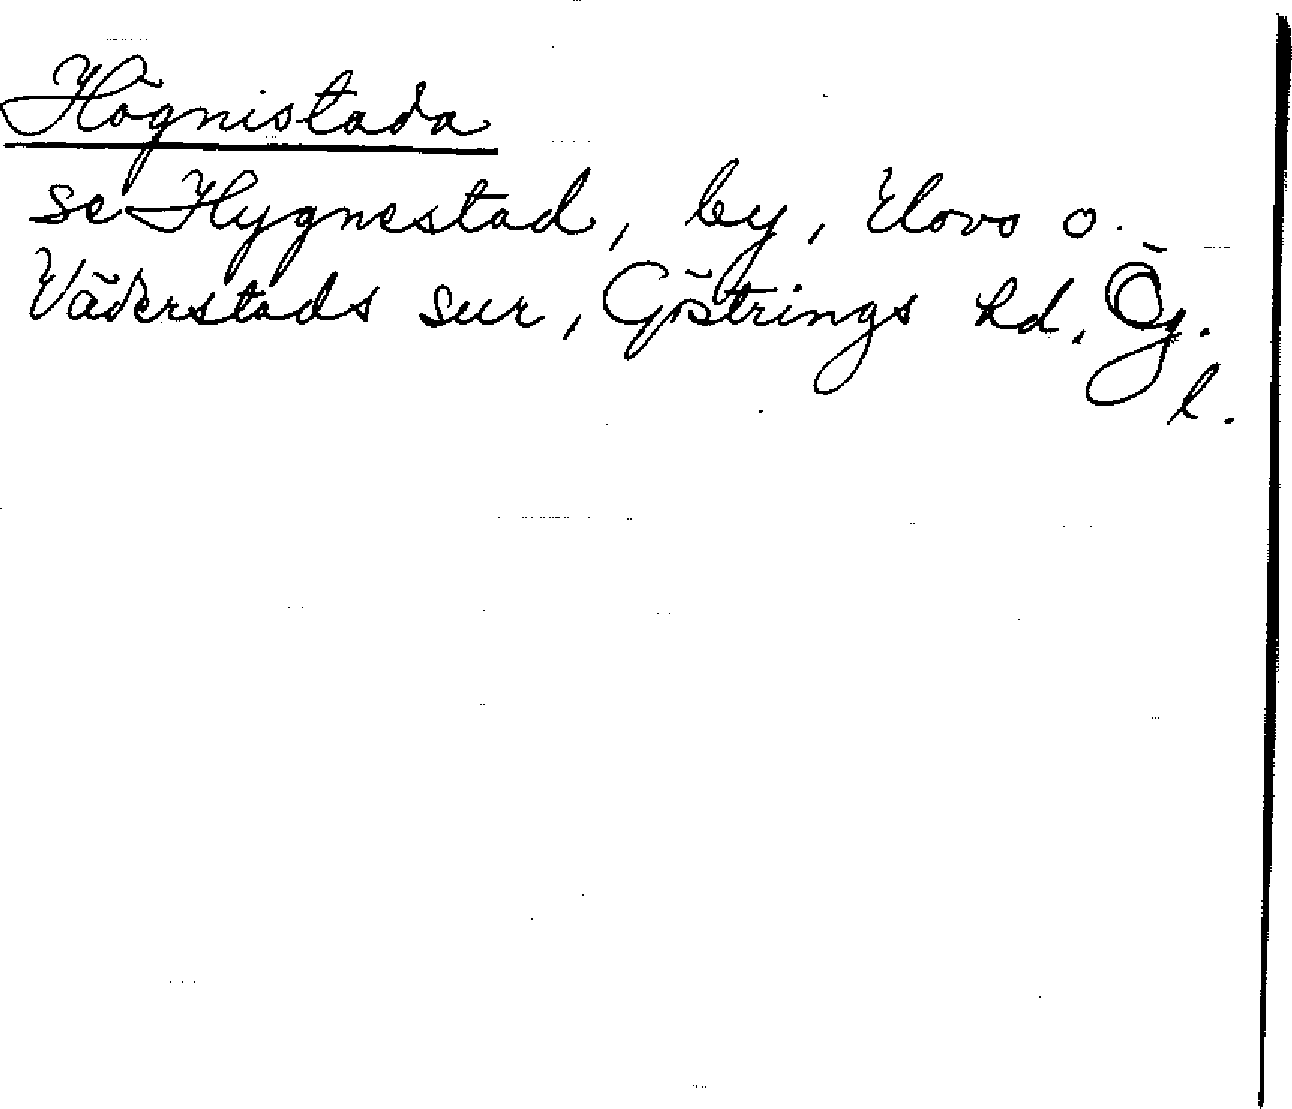 Högnistada
se Hygnestad, by, Elovs o.
Väderstads snr, Göstrings hd, Ög.
l.